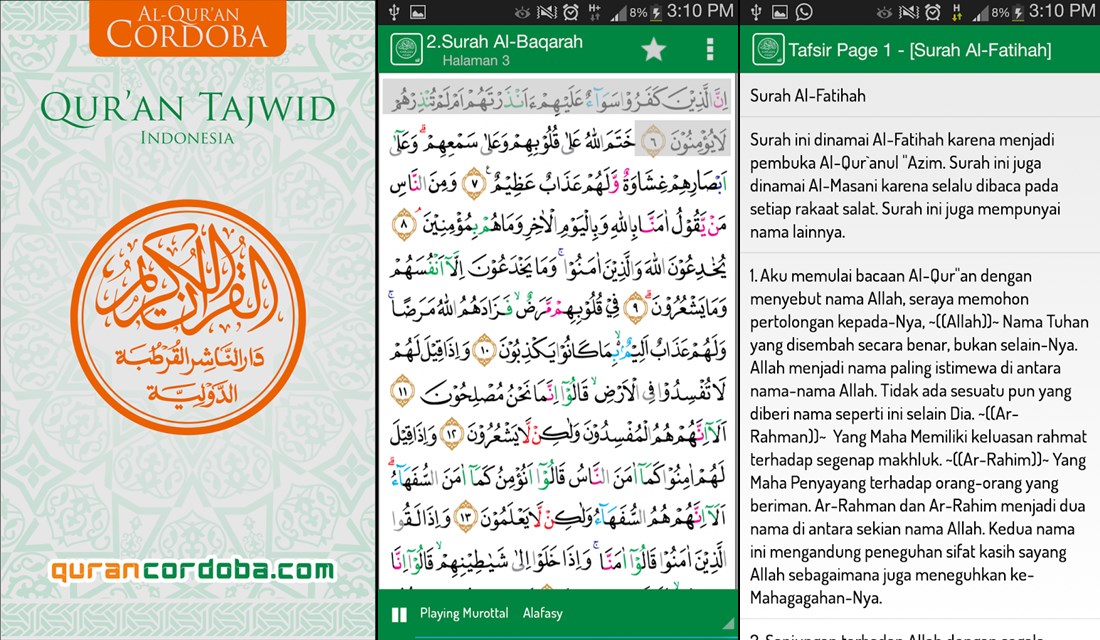 AL-QUR'AN
CORDOBA
QUR'AN TAJWID
INDONESIA
القرآن الكريم
دار الناشر القرطبة
الدولية
qurancordoba.com
8% 3:10 PM
2.Surah Al-Baqarah
Halaman 3
اِنَّ الَّذِيْنَ كَفَرُوْا سَوَاۤءٌ عَلَيْهِمْ ءَاَنْذَرْتَهُمْ اَمْ لَمْ تُنْذِرْهُمْ
لَا يُؤْمِنُوْنَ ٦ خَتَمَ اللّٰهُ عَلٰى قُلُوْبِهِمْ وَعَلٰى سَمْعِهِمْ ۗ وَعَلٰٓى
اَبْصَارِهِمْ غِشَاوَةٌ وَّلَهُمْ عَذَابٌ عَظِيْمٌ ٧ وَمِنَ النَّاسِ
مَنْ يَّقُوْلُ اٰمَنَّا بِاللّٰهِ وَبِالْيَوْمِ الْاٰخِرِ وَمَا هُمْ بِمُؤْمِنِيْنَ ۘ ٨
يُخٰدِعُوْنَ اللّٰهَ وَالَّذِيْنَ اٰمَنُوْا ۚ وَمَا يَخْدَعُوْنَ اِلَّآ اَنْفُسَهُمْ
وَمَا يَشْعُرُوْنَ ۗ ٩ فِيْ قُلُوْبِهِمْ مَّرَضٌ ۙ فَزَادَهُمُ اللّٰهُ مَرَضًا ۚ
وَلَهُمْ عَذَابٌ اَلِيْمٌ ۢ ۙ بِمَا كَانُوْا يَكْذِبُوْنَ ١٠ وَاِذَا قِيْلَ لَهُمْ
لَا تُفْسِدُوْا فِى الْاَرْضِ ۙ قَالُوْٓا اِنَّمَا نَحْنُ مُصْلِحُوْنَ ١١
اَلَآ اِنَّهُمْ هُمُ الْمُفْسِدُوْنَ وَلٰكِنْ لَّا يَشْعُرُوْنَ ١٢ وَاِذَا قِيْلَ
لَهُمْ اٰمِنُوْا كَمَآ اٰمَنَ النَّاسُ قَالُوْٓا اَنُؤْمِنُ كَمَآ اٰمَنَ السُّفَهَاۤءُ ۗ
اَلَآ اِنَّهُمْ هُمُ السُّفَهَاۤءُ وَلٰكِنْ لَّا يَعْلَمُوْنَ ١٣ وَاِذَا لَقُوا
الَّذِيْنَ اٰمَنُوْا قَالُوْٓا اٰمَنَّا ۚ وَاِذَا خَلَوْا اِلٰى شَيٰطِيْنِهِمْ ۙ قَالُوْٓا اِنَّا
Playing Murottal Alafasy
8% 3:10 PM
Tafsir Page 1 - [Surah Al-Fatihah]
Surah Al-Fatihah
Surah ini dinamai Al-Fatihah karena menjadi
pembuka Al-Qur`anul "Azim. Surah ini juga
dinamai Al-Masani karena selalu dibaca pada
setiap rakaat salat. Surah ini juga mempunyai
nama lainnya.
1. Aku memulai bacaan Al-Qur"an dengan
menyebut nama Allah, seraya memohon
pertolongan kepada-Nya, ~((Allah))~ Nama Tuhan
yang disembah secara benar, bukan selain-Nya.
Allah menjadi nama paling istimewa di antara
nama-nama Allah. Tidak ada sesuatu pun yang
diberi nama seperti ini selain Dia. ~((Ar-
Rahman))~ Yang Maha Memiliki keluasan rahmat
terhadap segenap makhluk. ~((Ar-Rahim))~ Yang
Maha Penyayang terhadap orang-orang yang
beriman. Ar-Rahman dan Ar-Rahim menjadi dua
nama di antara sekian nama Allah. Kedua nama
ini mengandung peneguhan sifat kasih sayang
Allah sebagaimana juga meneguhkan ke-
Mahagagahan-Nya.